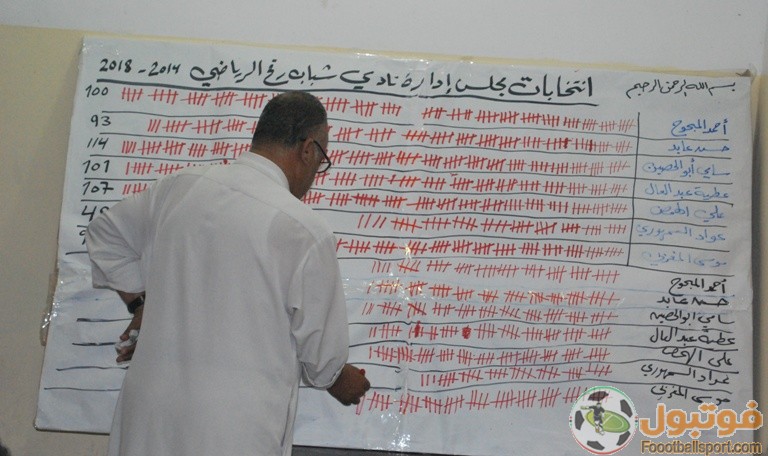 بسم الله الرحمن الرحيم
انتخابات مجلس إدارة نادي شباب رفح الرياضي 2014 - 2018
أحمد المبحوح 100
حسن عابد 93
سامي أبو الحصين 114
عطية عبد العال 101
علي 107
عواد السمهوري
موسى المغربي
أحمد المبحوح
حسن عابد
سامي أبو الحصين
عطية عبد العال
علي
عواد السمهوري
موسى المغربي
فوتبول
Foootballsport.com